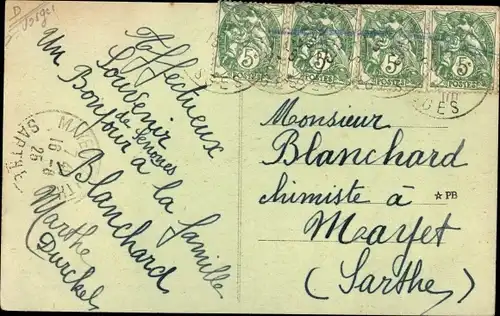 Affectueux
Souvenir
de Senones
Un Bonjour à la famille
Blanchard
Marthe
Durckel
5
5
5
5
POSTES
POSTES
POSTES
POSTES
Monsieur
Blanchard
chimiste à
☆ PB
Mayet
(Sarthe)
MAYET
SARTHE